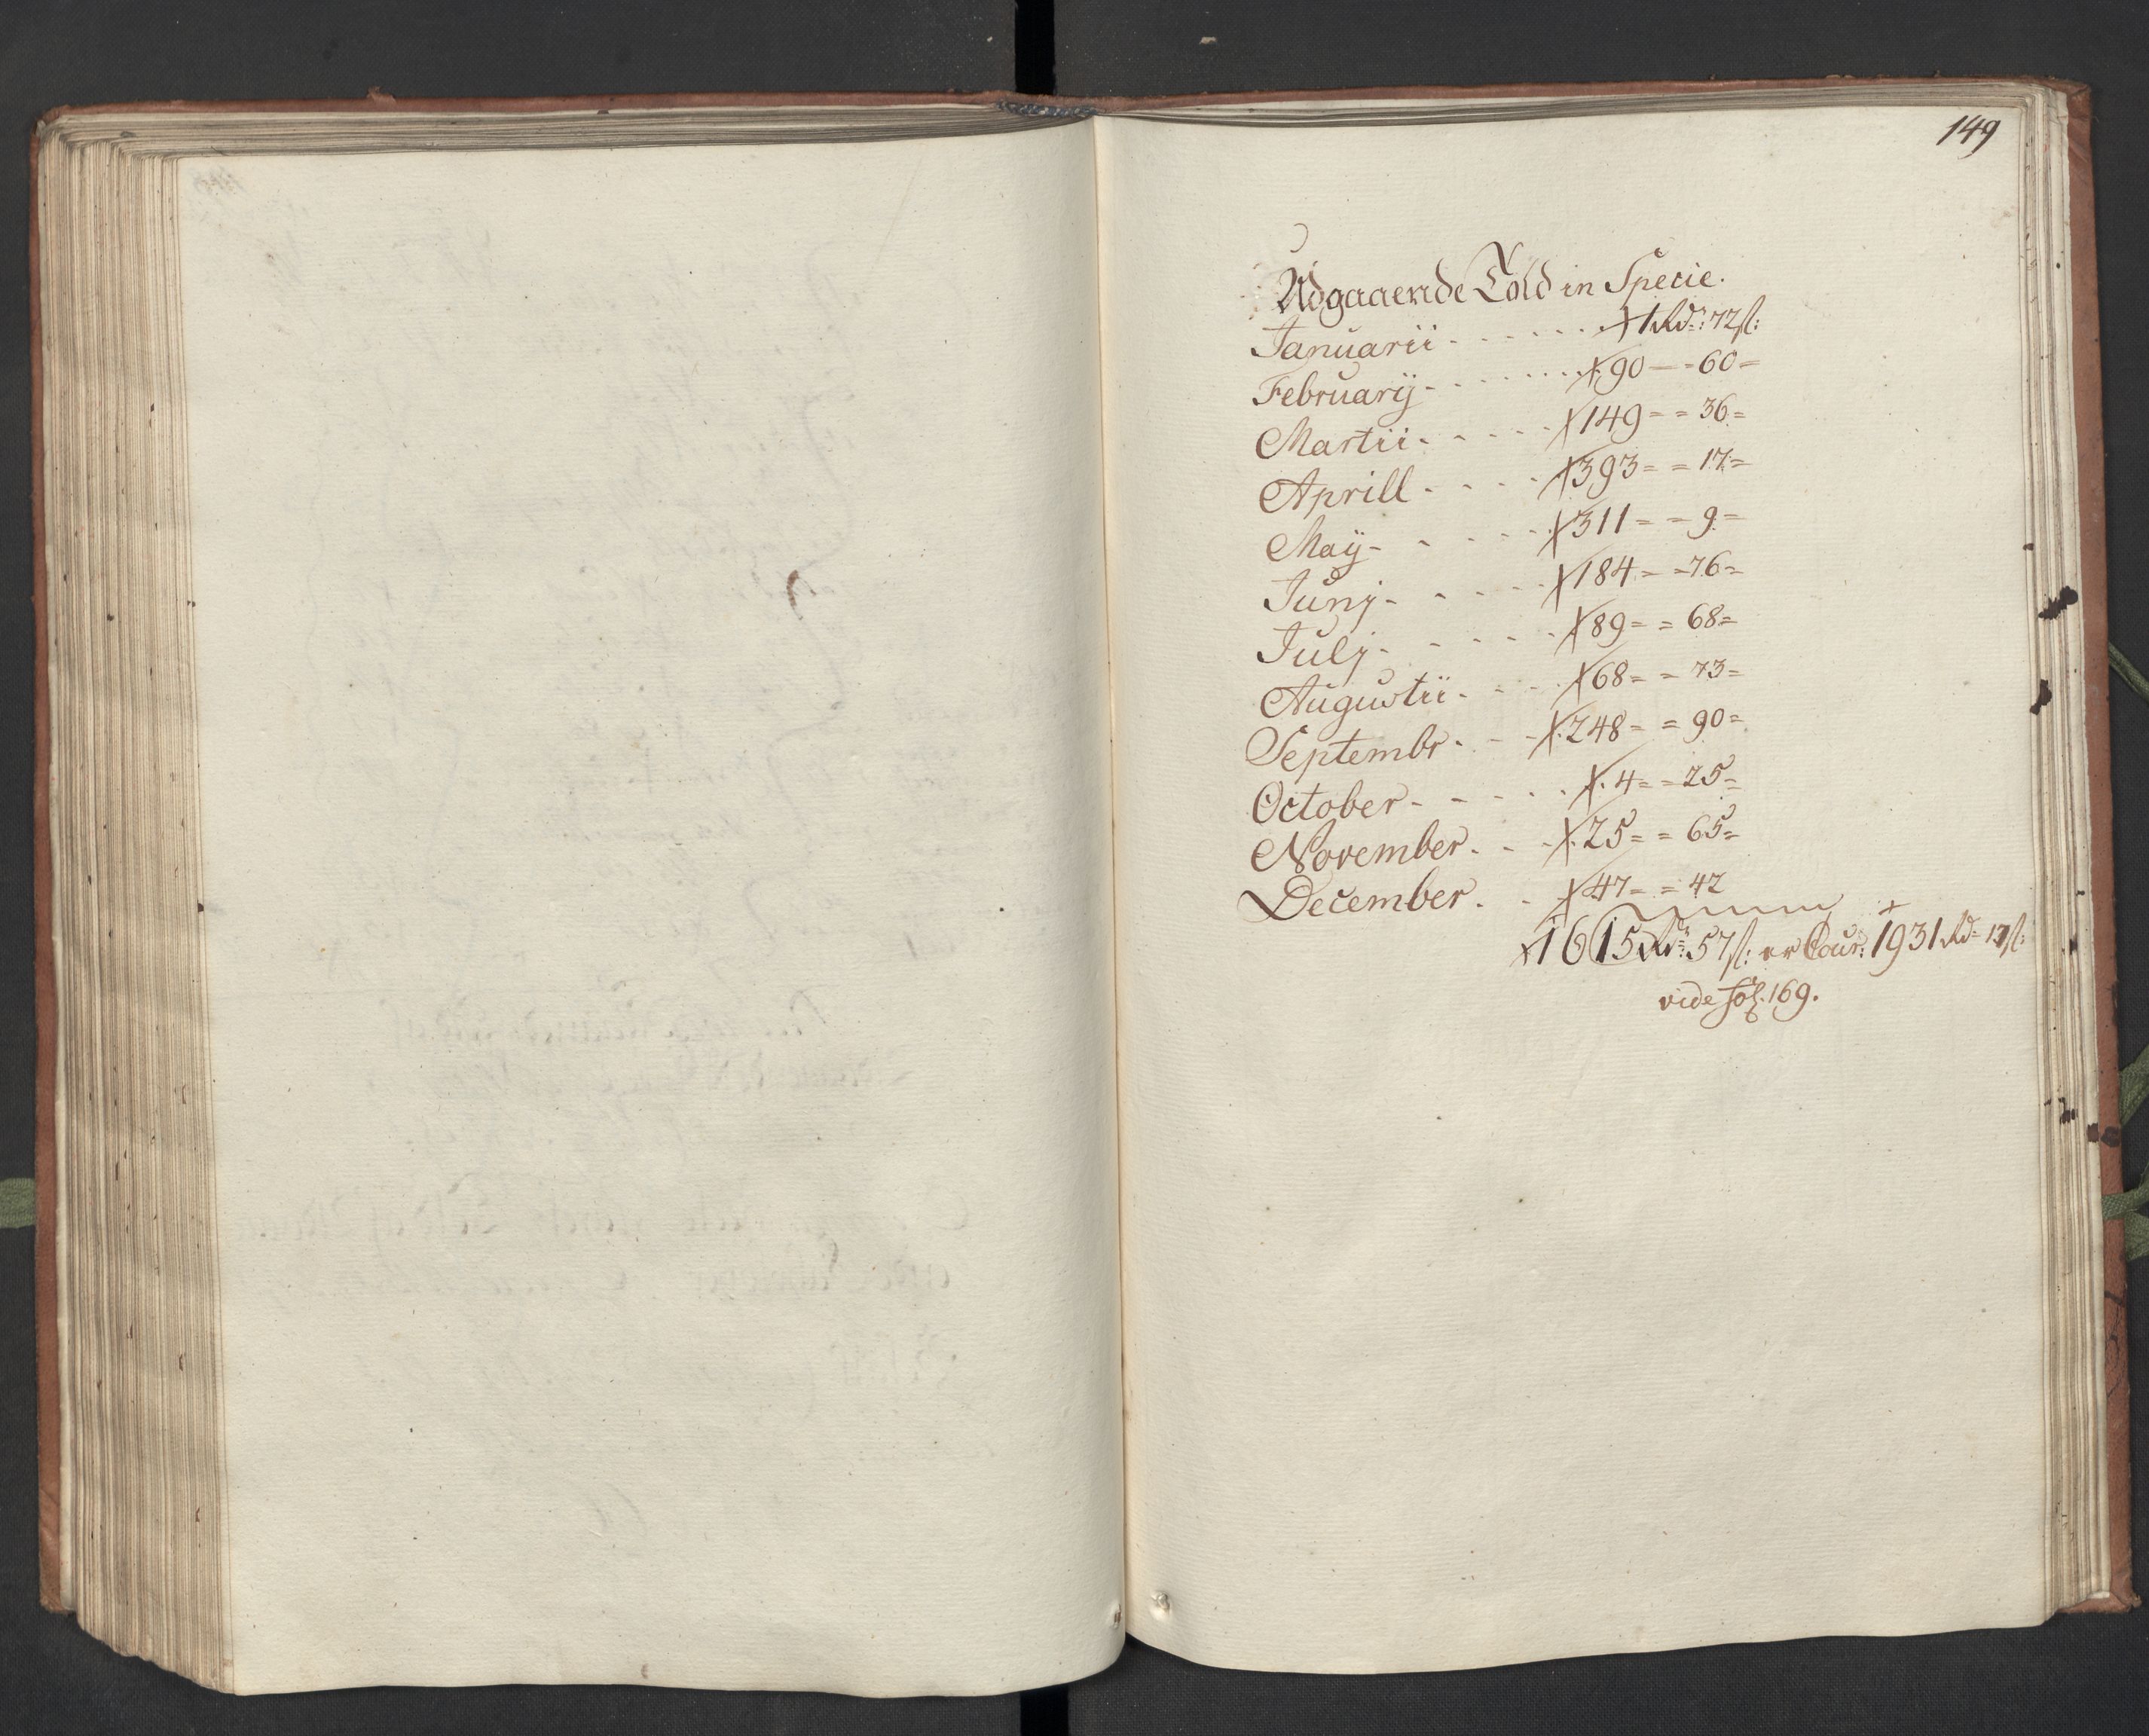 149
Udgaaende Told in Specie.
Januarii - - - - - - 1 Rd: 72 ß:
Februarij - - - - - - 90 - - 60 =
Martii - - - - - 149 = = 36 =
Aprill - - - - 393 = = 17 =
Maij - - - - - 311 = = 9 =
Junj - - - - - 184 = = 76 =
Julj - - - - - 89 = = 68 =
Augustii - - - - 68 = = 73 =
Septembr - - - 248 = = 90 =
October - - - - - 4 = = 25 =
November - - - 25 = = 65 =
December - - 47 = = 42
1615 Rd: 57 ß: er Cour: 1931 Rd: 17 ß:
vide fol: 169.